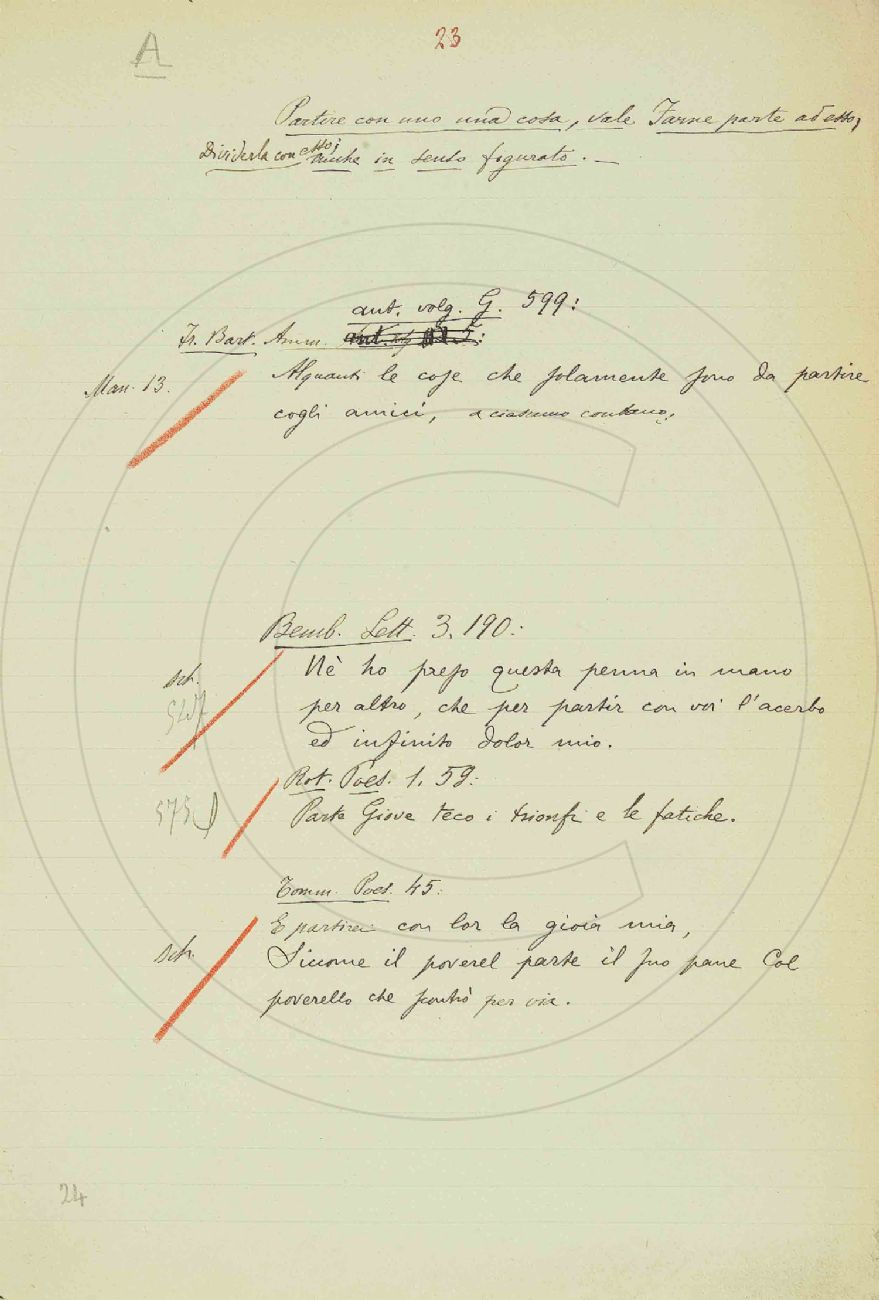 A
23
Partire con uno una cosa, vale Farne parte ad esso,
Dividerla con esso; anche in senso figurato. —
ant. volg. G. 599:
Fr. Bart. Amm.
Man. 13.
Alquanti le cose che solamente sono da partire
cogli amici, a ciascuno contano;
Bemb. Lett. 3. 190:
Nè ho preso questa penna in mano
per altro, che per partir con voi l'acerbo
ed infinito dolor mio.
Rot. Poes. 1. 59:
Parte Giove teco i trionfi e le fatiche.
Tomm. Poes. 45:
E partirei con lor la gioia mia,
Siccome il poverel parte il suo pane Col
poverello che scontrò per via.
24